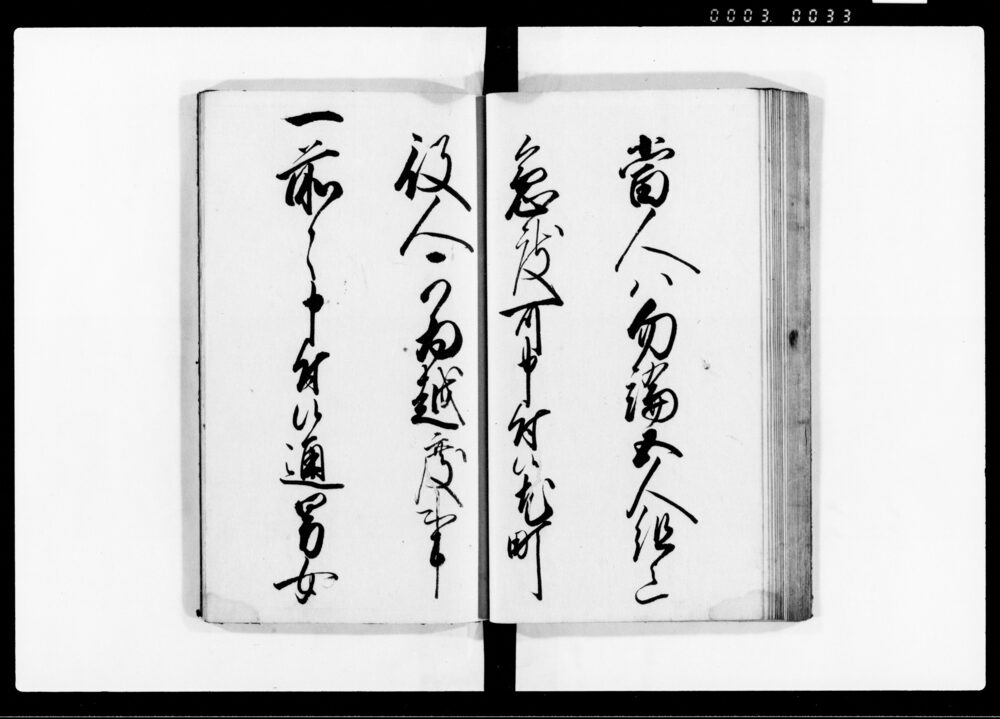 0003. 0033
當人ハ勿論五人組迄
急度可申付候尤町
役人可為越度事
一前々申付候通男女